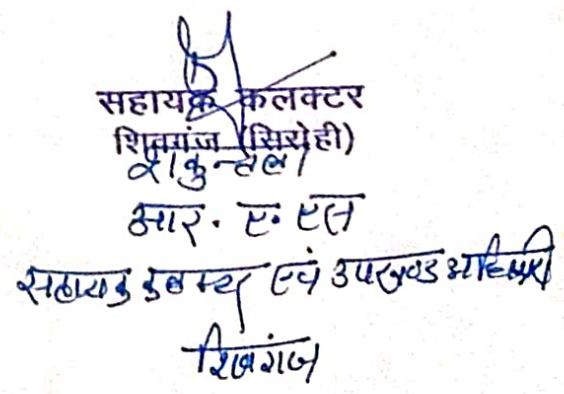 सहायक कलक्टर
शिवगंज (सिरोही)
शकुन्तला
आर. ए. एस
सहायक कलक्टर एवं उपखण्ड अधिकारी
शिवगंज